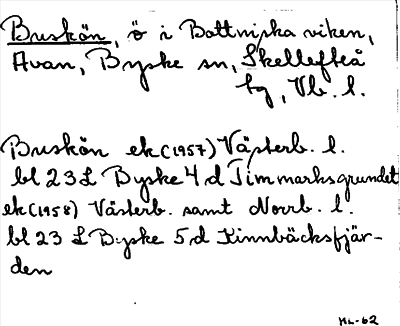 Buskön, ö i Bottniska viken,
Avan, Byske sn, Skellefteå
tg, Vb. l.
Buskön ek(1957) Västerb. l.
bl 23 L Byske 4 d Timmarksgrundet
ek(1958) Västerb. samt Norrb. l.
bl 23 L Byske 5 d Kinnbäcksfjär-
den
ML-62